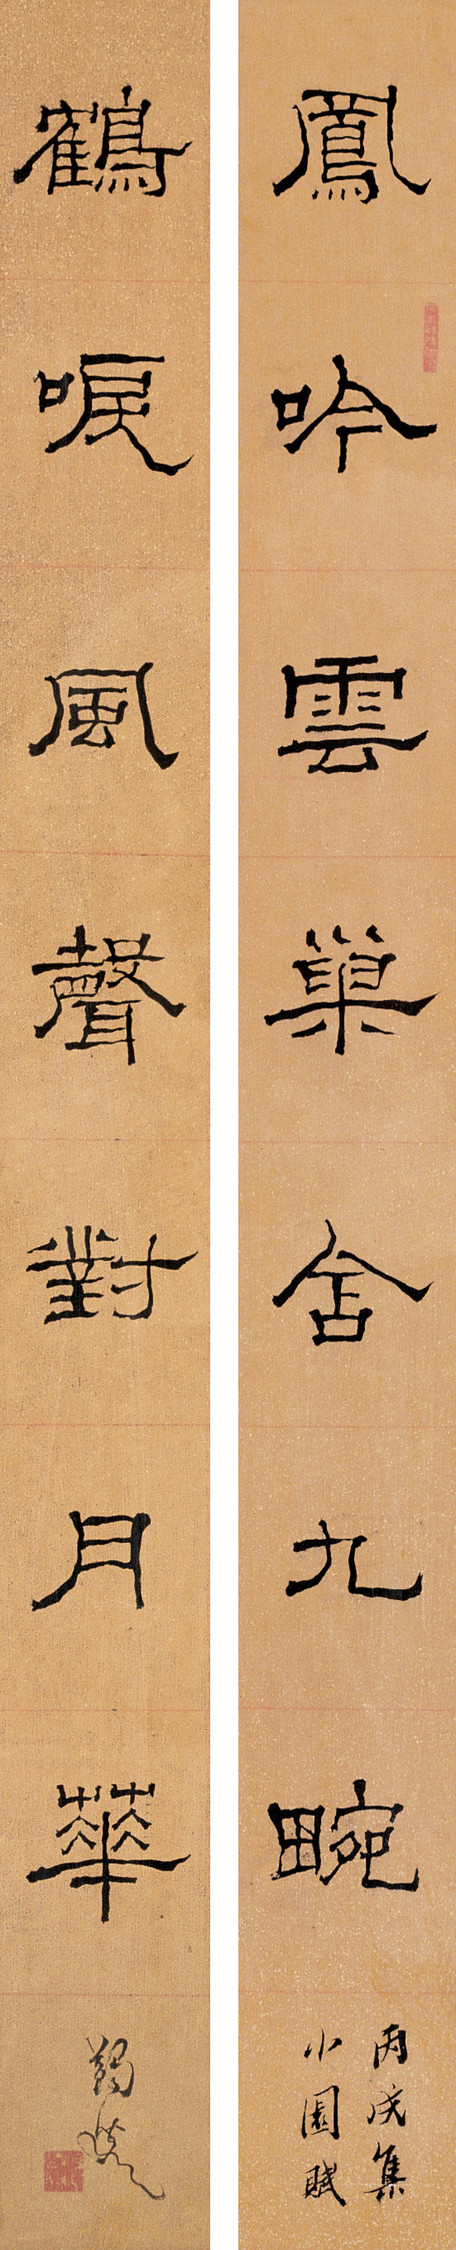 鳳吟雲巢舍九畹
丙戌集
小園賦
鶴唳風聲對月華